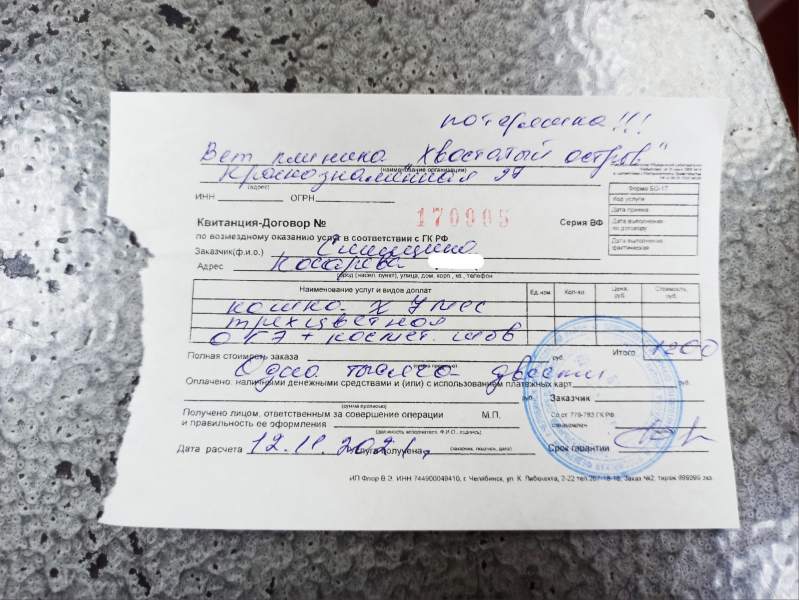 потеряшка!!!
Вет клиника "Хвостатый остров"
(наименование организации)
Краснознаменная 27
(адрес)
ИНН ОГРН
Форма БО-17
Код услуги
Дата приема
Дата выполнения по договору
Дата выполнения фактическая
Квитанция-Договор № 170005 Серия ВФ
по возмездному оказанию услуг в соответствии с ГК РФ
Заказчик(ф.и.о.)
Адрес Косарева
город (насел. пункт), улица, дом, корп., кв., телефон
Наименование услуг и видов доплат Ед.изм. Кол-во Цена, руб. Стоимость, руб.
кошка х 7 мес
трехцветная
ОГЭ + космет. шов
Итого 1200
Полная стоимость заказа руб.
Одна тысяча двести
Оплачено: наличными денежными средствами и (или) с использованием платежных карт руб.
руб. Заказчик
(сумма прописью)
Получено лицом, ответственным за совершение операции М.П. Со ст 779-783 ГК РФ
и правильность ее оформления ознакомлен
(должность исполнителя, Ф.И.О., подпись)
Дата расчета 12.11.2021г. Услуга получена Срок гарантии
(заказчик, подпись, дата)
ИП Флор В.Э. ИНН 744900049410, г. Челябинск, ул. К. Либкнехта, 2-22 тел.267-18-18. Заказ №2. тираж 999295 экз.